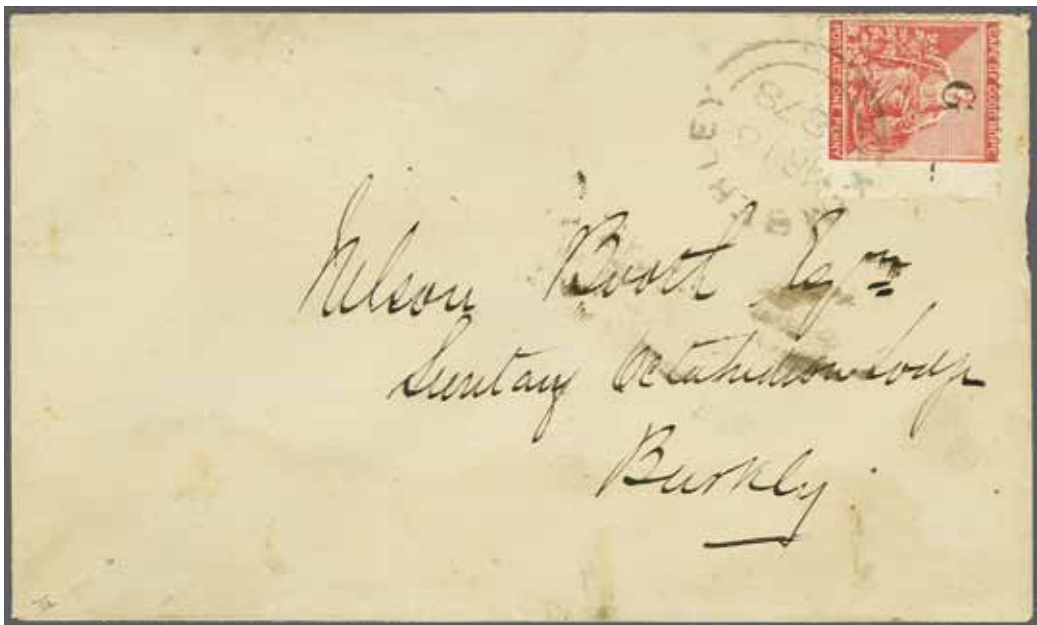 CAPE OF GOOD HOPE
G
POSTAGE ONE PENNY
BERLEY
MR 10
78
Nelson Booth Esqre
Secretary Octahedron Lodge
Barkly